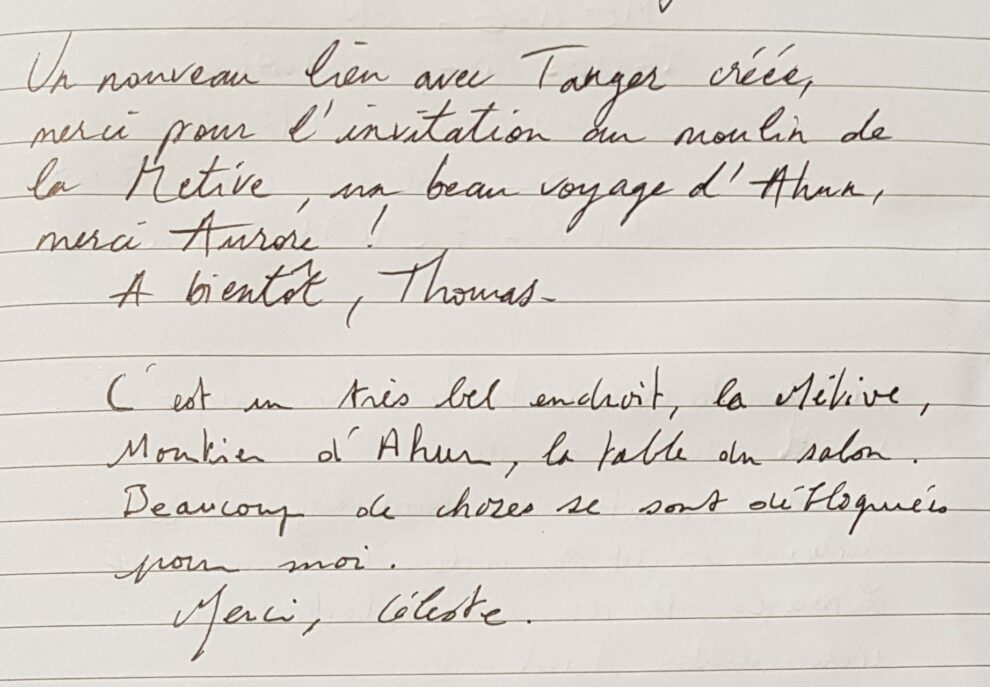 Un nouveau lien avec Tanger créée,
merci pour l'invitation au moulin de
la Metive, un beau voyage d'Ahun,
merci Aurore !
A bientôt, Thomas-
C'est un très bel endroit, la Métive,
Moutier d'Ahun, la table du salon.
Beaucoup de chozes se sont débloquées
pour moi.
Merci, Céleste.